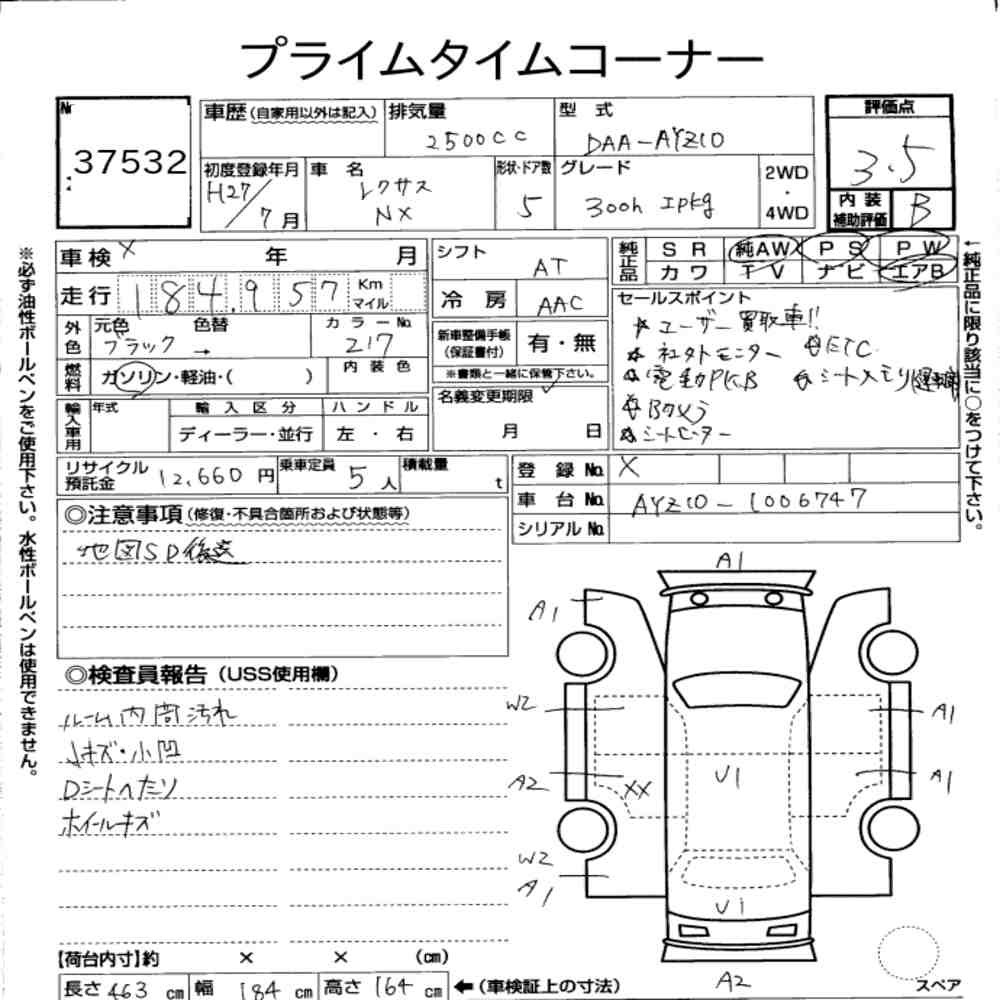 プライムタイムコーナー
Nr
37532
車歴(自家用以外は記入)
排気量
2500CC
型 式
DAA-AYZ10
評価点
3.5
初度登録年月
H27/7月
車 名
レクサス
NX
形状・ドア数
5
グレード
300h IPkg
2WD
・
4WD
内 装
補助評価
B
車検 X 年 月
走行 184,957 Km
マイル
シフト
AT
冷 房
AAC
純正品
SR 純AW PS PW
カワ TV ナビ エアB
外色
元色 色替
ブラック →
カラーNo.
217
燃料
ガソリン・軽油・( )
内 装 色
新車整備手帳
(保証書付)
有・無
※書類と一緒に保管下さい。
セールスポイント
ユーザー買取車!!
社外モニター ETC
電動PKB シートメモリ
Bカメラ
シートヒーター
名義変更期限
月 日
輸入車用
年式
輸 入 区 分
ハンドル
ディーラー・並行
左 ・ 右
リサイクル
預託金
12,660 円
乗車定員
5人
積載量
t
登 録 No. X
車 台 No. AYZ10-1006747
シリアル No.
◎注意事項(修復・不具合箇所および状態等)
地図SD後送
◎検査員報告(USS使用欄)
ルーム内間汚れ
小キズ・小凹
Dシートへたり
ホイールキズ
A1
A1
W2
A1
A2
XX
U1
A1
W2
A1
U1
A2
スペア
【荷台内寸】約 × × (cm)
長さ 463 cm 幅 184 cm 高さ 164 cm ←(車検証上の寸法)
※必ず油性ボールペンをご使用下さい。水性ボールペンは使用できません。
←純正品に限り該当に○をつけて下さい。